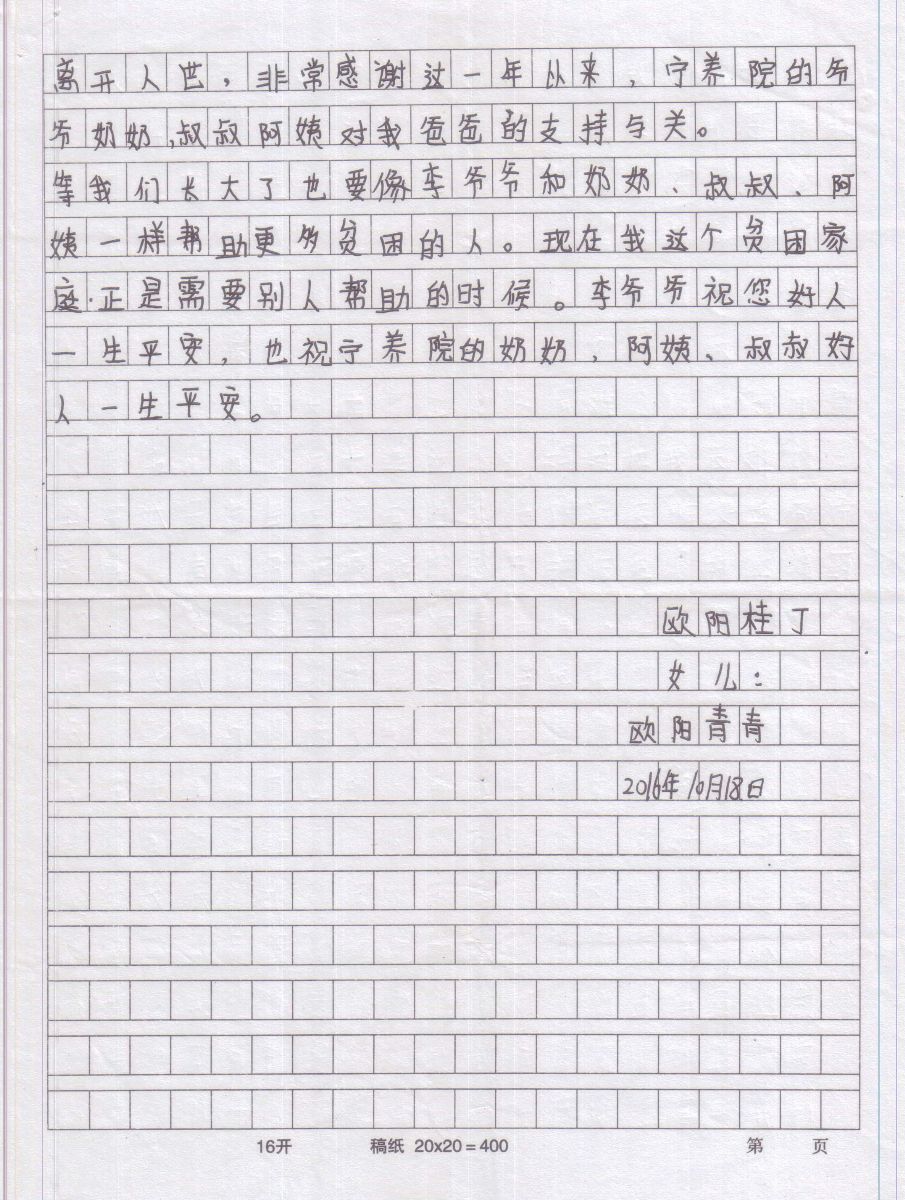 离开人世，非常感谢过一年以来，宁养院的爷
爷奶奶，叔叔阿姨对我爸爸的支持与关。
等我们长大了也要像李爷爷和奶奶、叔叔、阿
姨一样帮助更多贫困的人。现在我这个贫困家
庭.正是需要别人帮助的时候。李爷爷祝您好人
一生平安，也祝宁养院的奶奶，阿姨、叔叔好
人一生平安。
欧阳桂丁
女儿：
欧阳青青
2016年10月18日
16开 稿纸 20x20=400 第 页